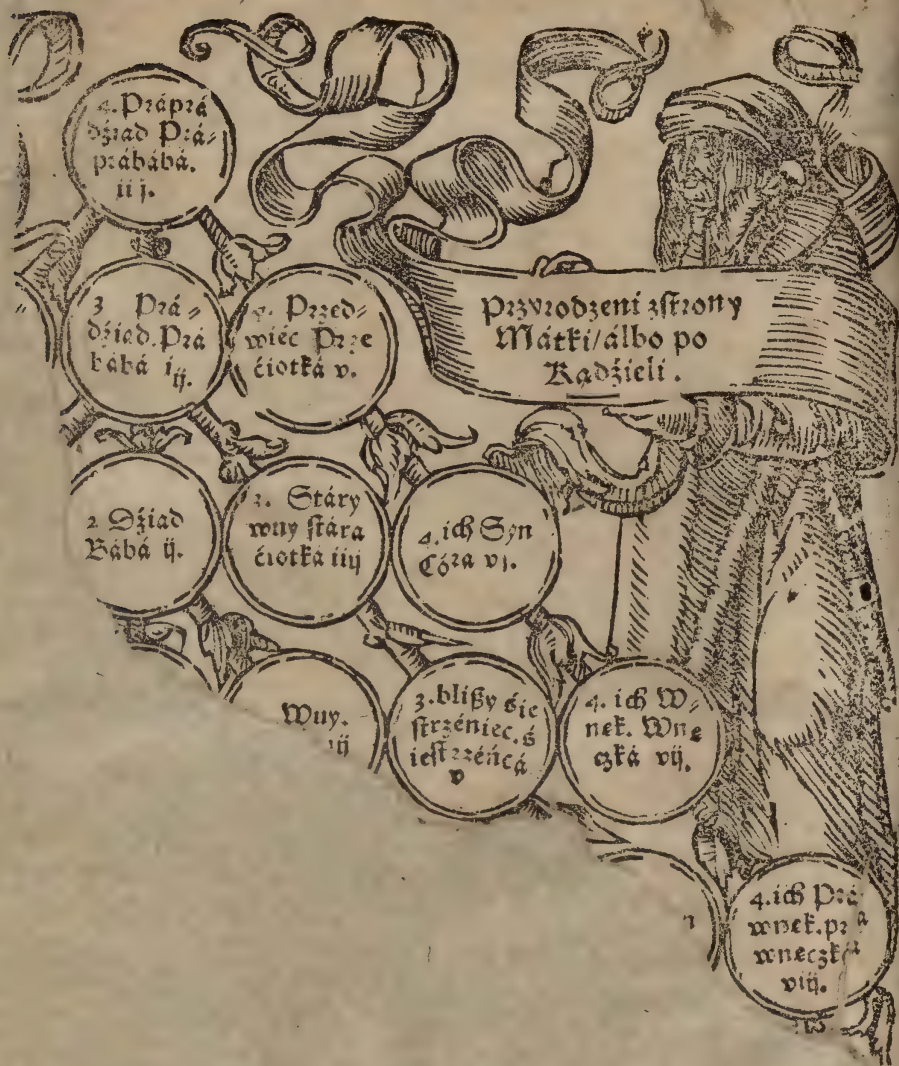 4. Práprá
dźiad Prá⸗
prábábá.
iij.
3 Prá⸗
dźiad. Prá
bábá iij.
Przed⸗
wiéc Prze
ćiotká v.
Przyrodzeni zstrony
Mátki/álbo po
Kądźieli.
2 Dźiad
Bábá ij.
3. Stáry
wuy stára
ćiotká iiij
4. ich Syn
Córá vj.
Wuy.
3. blißy śie
strzéniec. ś
iestrzéńcá
v
4. ich W⸗
nek. Wne
czká vij.
4. ich Prá
wnek. prá
wneczká
viij.